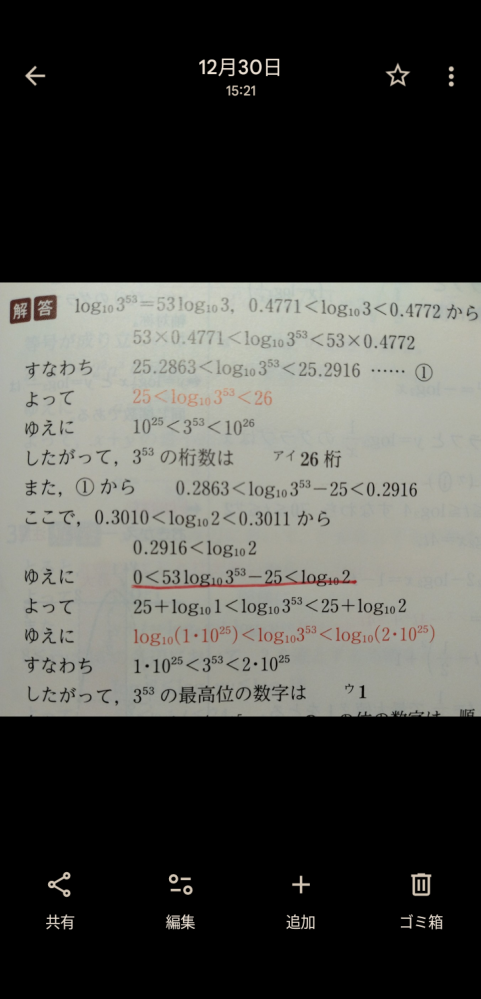 12月30日
15:21
解答 log₁₀3⁵³=53log₁₀3, 0.4771<log₁₀3<0.4772 から
53×0.4771<log₁₀3⁵³<53×0.4772
すなわち 25.2863<log₁₀3⁵³<25.2916 …… ①
よって 25<log₁₀3⁵³<26
ゆえに 10²⁵<3⁵³<10²⁶
したがって，3⁵³ の桁数は アイ26 桁
また，①から 0.2863<log₁₀3⁵³−25<0.2916
ここで，0.3010<log₁₀2<0.3011 から
0.2916<log₁₀2
ゆえに 0<53log₁₀3⁵³−25<log₁₀2.
よって 25+log₁₀1<log₁₀3⁵³<25+log₁₀2
ゆえに log₁₀(1・10²⁵)<log₁₀3⁵³<log₁₀(2・10²⁵)
すなわち 1・10²⁵<3⁵³<2・10²⁵
したがって，3⁵³ の最高位の数字は ウ1
共有 編集 追加 ゴミ箱